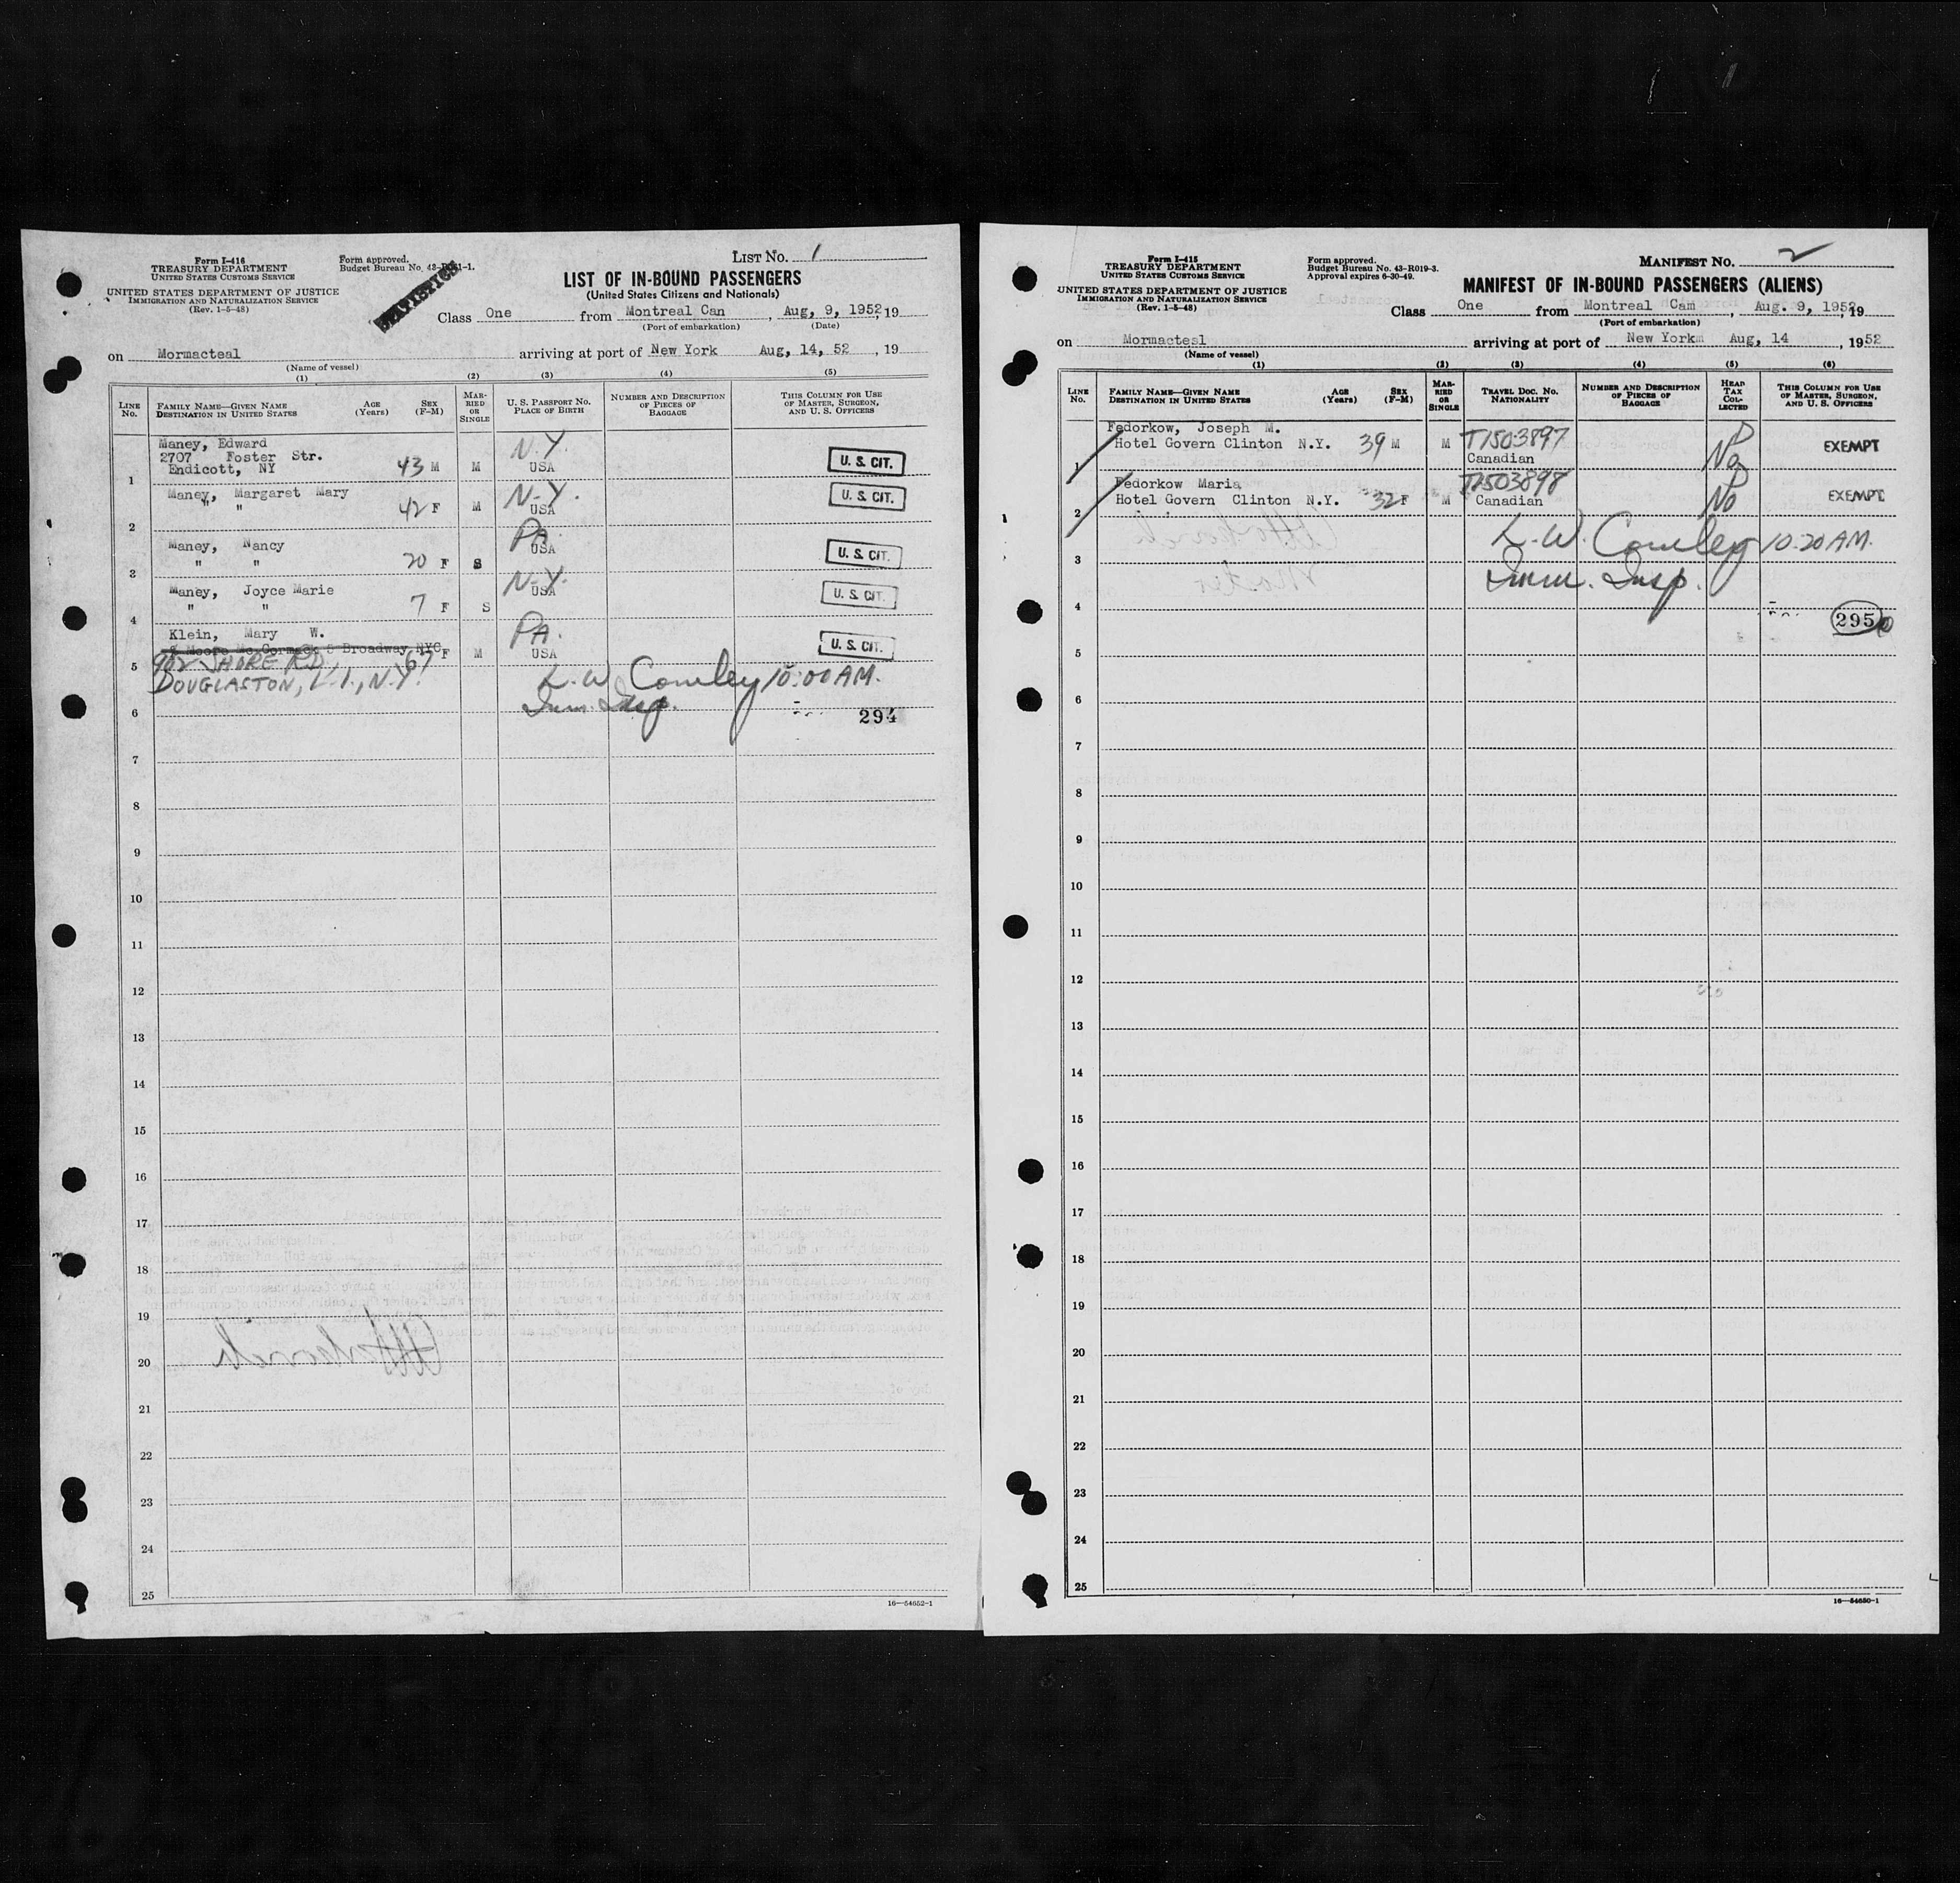 Form I-416
TREASURY DEPARTMENT
UNITED STATES CUSTOMS SERVICE
UNITED STATES DEPARTMENT OF JUSTICE
IMMIGRATION AND NATURALIZATION SERVICE
(Rev. 1-5-48)
Form approved.
Budget Bureau No. 43-
STATISTICS
LIST NO. 1
LIST OF IN-BOUND PASSENGERS
(United States Citizens and Nationals)
Class One from Montreal Can , Aug, 9, 1952, 19
(Port of embarkation) (Date)
on Mormacteal arriving at port of New York Aug, 14, 52 , 19
(Name of vessel)
(1) (2) (3) (4) (5)
LINE No. FAMILY NAME—GIVEN NAME DESTINATION IN UNITED STATES AGE (Years) SEX (F-M) MARRIED OR SINGLE U. S. PASSPORT NO. PLACE OF BIRTH NUMBER AND DESCRIPTION OF PIECES OF BAGGAGE THIS COLUMN FOR USE OF MASTER, SURGEON, AND U. S. OFFICERS
Maney, Edward N.Y.
2707 Foster Str. U. S. CIT.
Endicott, NY 43 M M USA
1
Maney, Margaret Mary N.Y. U. S. CIT.
" " 42 F M USA
2
Maney, Nancy PA. U. S. CIT.
" " 20 F S USA
3
Maney, Joyce Marie N.Y. U. S. CIT.
" " 7 F S USA
4
Klein, Mary W. PA. U. S. CIT.
% Moore Mc Cormack 5 Broadway NYC F M USA
5 902 SHORE RD. 67
DOUGLASTON, L.I., N.Y. L. W. Cowley 10:00 AM.
6 Imm. Insp. 294
7
8
9
10
11
12
13
14
15
16
17
18
19
20
21
22
23
24
25
16—54652-1
Form I-415
TREASURY DEPARTMENT
UNITED STATES CUSTOMS SERVICE
UNITED STATES DEPARTMENT OF JUSTICE
IMMIGRATION AND NATURALIZATION SERVICE
(Rev. 1-5-48)
Form approved.
Budget Bureau No. 43-R019-3.
Approval expires 6-30-49.
MANIFEST NO. 2
MANIFEST OF IN-BOUND PASSENGERS (ALIENS)
Class One from Montreal Cam , Aug. 9, 1952, 19
(Port of embarkation)
on Mormacteal arriving at port of New Yorkm Aug, 14 , 1952
(Name of vessel)
(1) (2) (3) (4) (5) (6)
LINE No. FAMILY NAME—GIVEN NAME DESTINATION IN UNITED STATES AGE (Years) SEX (F-M) MARRIED OR SINGLE TRAVEL DOC. NO. NATIONALITY NUMBER AND DESCRIPTION OF PIECES OF BAGGAGE HEAD TAX COLLECTED THIS COLUMN FOR USE OF MASTER, SURGEON, AND U. S. OFFICERS
Fedorkow, Joseph M.
Hotel Govern Clinton N.Y. 39 M M T1503897 EXEMPT
1 Canadian No
Fedorkow Maria T1503898
Hotel Govern Clinton N.Y. 32 F M Canadian No EXEMPT
2
L. W. Cowley 10:20 AM.
3
Imm. Insp.
4 295
5
6
7
8
9
10
11
12
13
14
15
16
17
18
19
20
21
22
23
24
25
16—54650-1